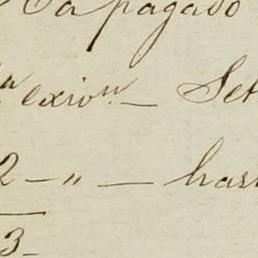 Ca pagado
a exion. — Set
2 — " — has
3 —